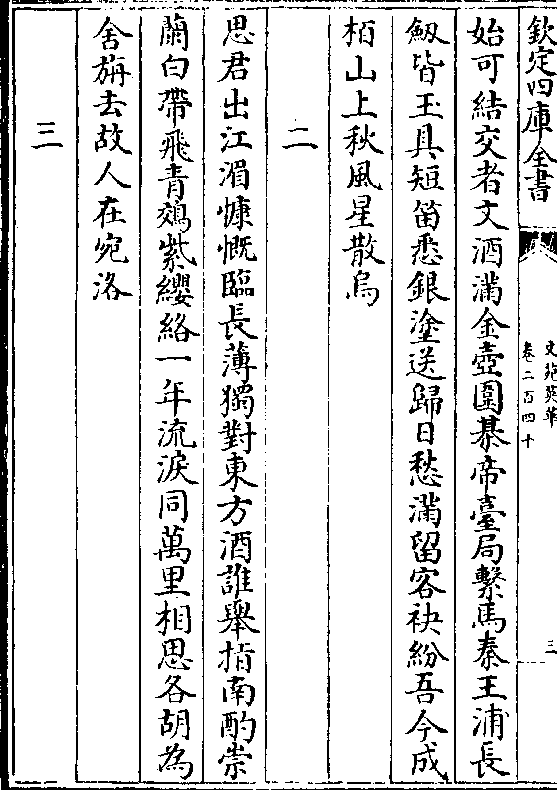 欽定四庫全書
文苑英華
卷二百四十
三
始可結交者文酒滿金壺圍棊帝臺局繫馬秦王浦長
劔皆玉具短笛悉銀塗送歸日愁滿留客袂紛吾今成
栢山上秋風星散烏
二
思君出江湄慷慨臨長薄獨對東方酒誰舉指南酌崇
蘭白帶飛青鵁紫纓絡一年流淚同萬里相思各胡為
舍旃去故人在宛洛
三